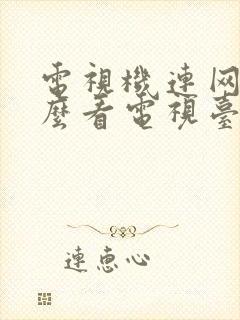 電視機連网
麼看電視臺
連惠心